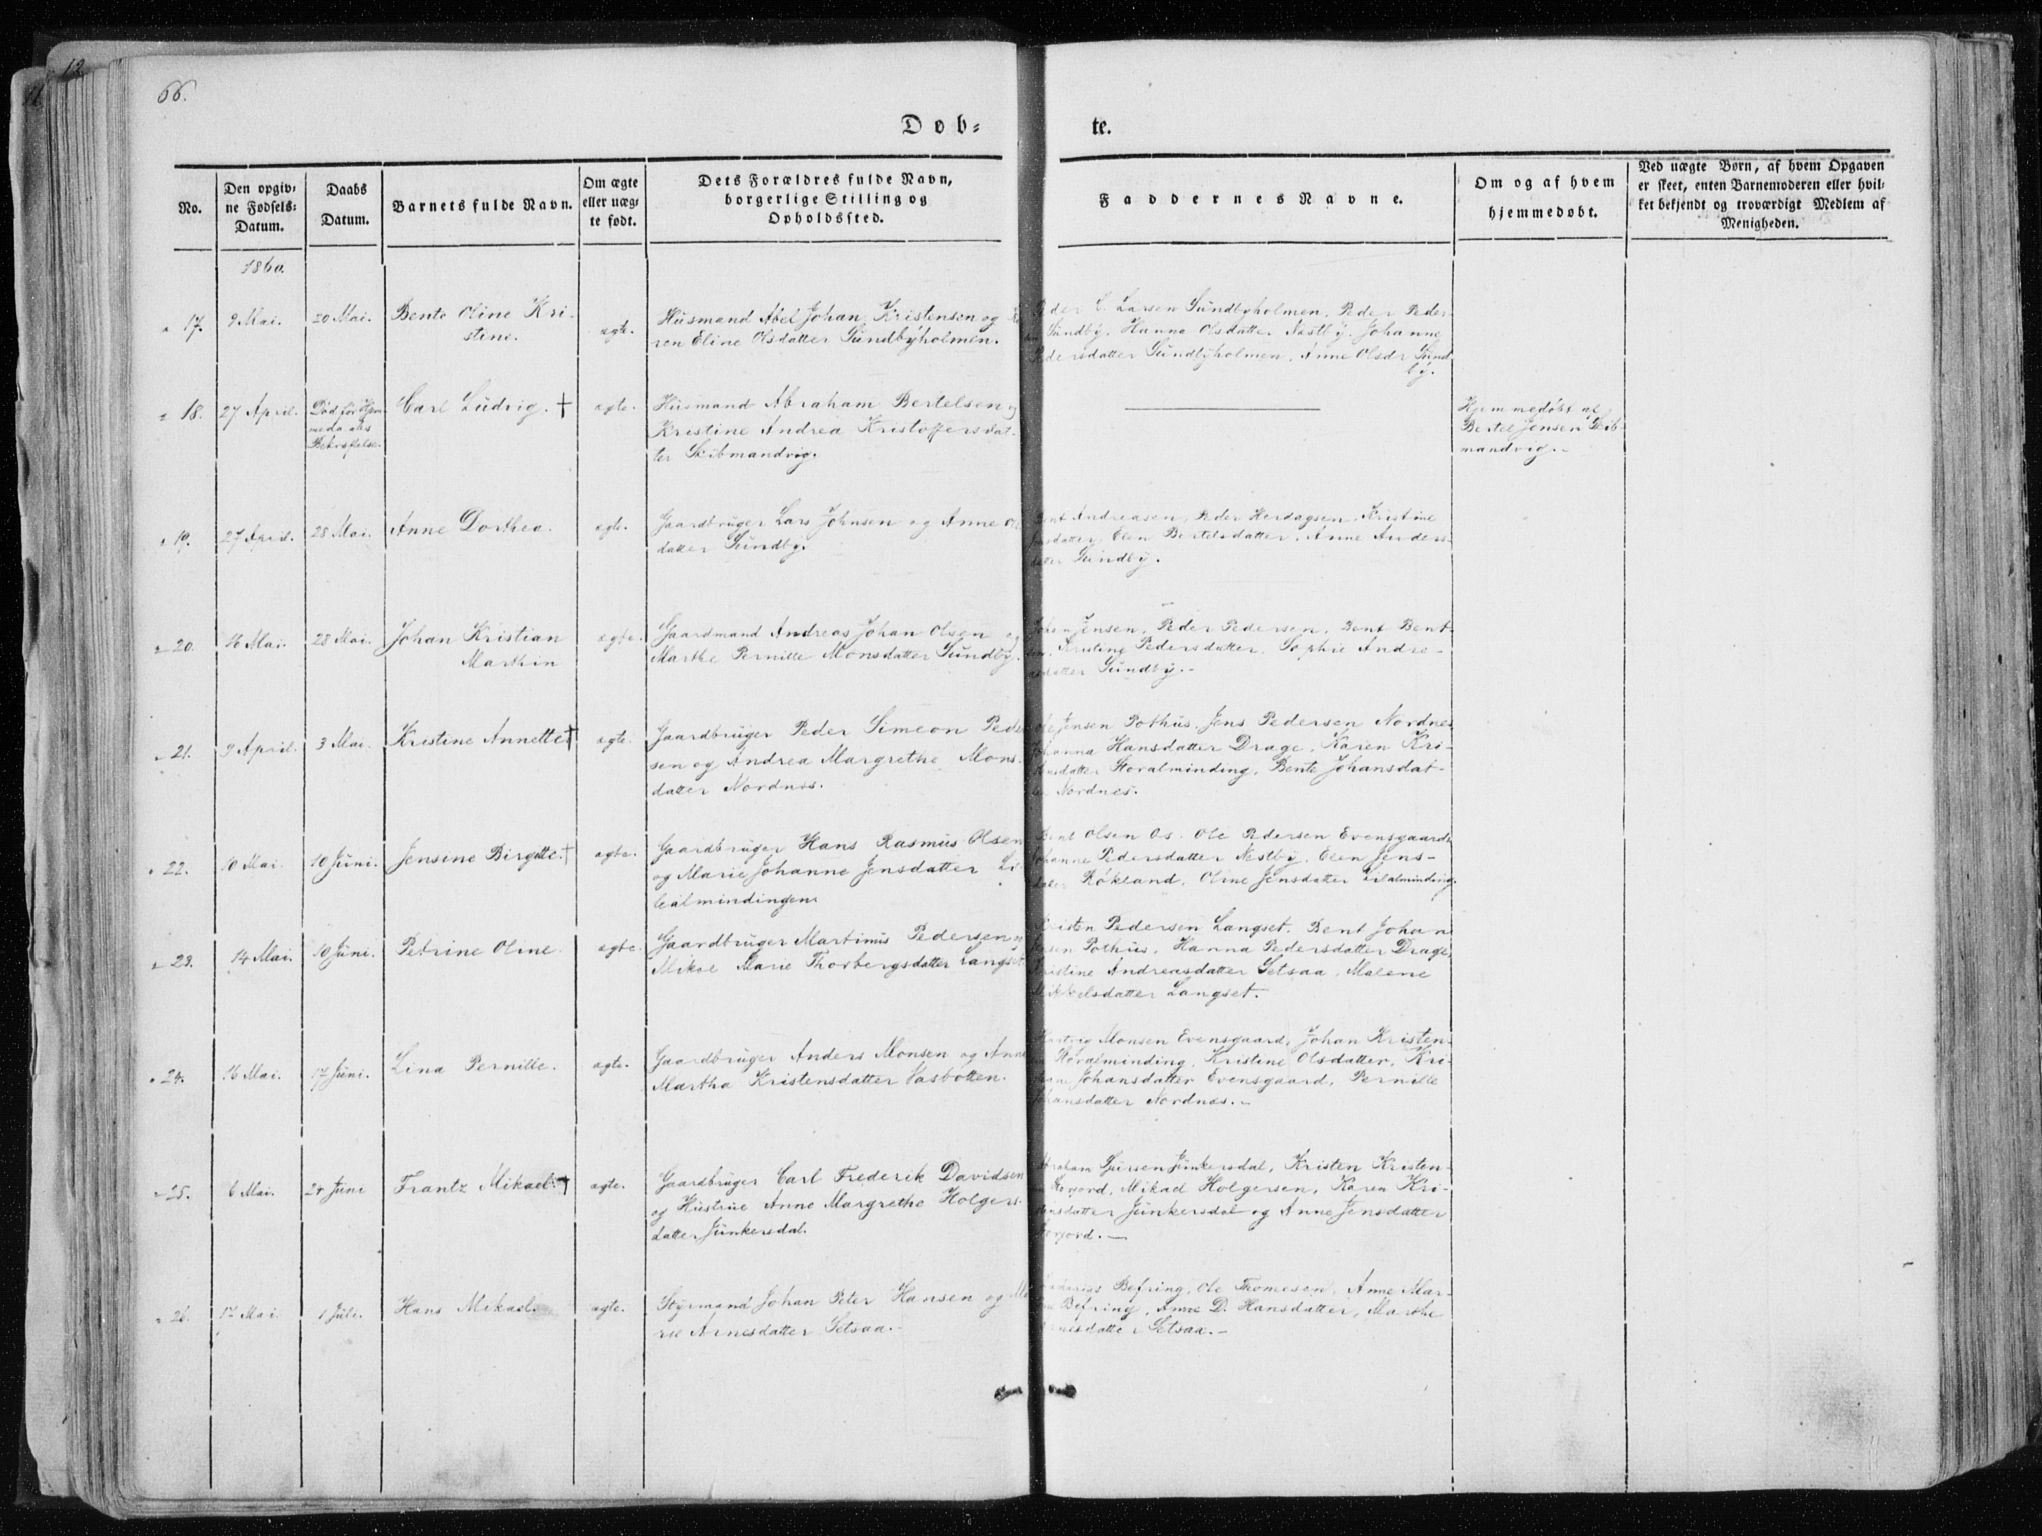 12
66.
Døb-
te.
No.
Den opgiv-
ne Fødsels-
Datum.
Daabs
Datum.
Barnets fulde Navn.
Om ægte
eller uæg-
te født.
Dets Forældres fulde Navn,
borgerlige Stilling og
Opholdssted.
Faddernes Navne.
Om og af hvem
hjemmedøbt.
Ved uægte Børn, af hvem Opgaven
er skeet, enten Barnemoderen eller hvil-
ket bekjendt og troværdigt Medlem af
Menigheden.
1860.
17.
9 Mai.
20 Mai.
Bente Oline Kri-
stine.
ægte.
Husmand Abel Johan Kristensen og Ka-
ren Eline Olsdatter Sundbyholmen.
Peder C. Larsen Sundbyholmen, Peder Peder-
Sundby, Hanna Olsdatter Nestby, Johanne
Pedersdatter Sundbyholmen, Anne Olsdr Sund
by.
18.
27 April.
Død før Hjem-
medaabs
Bekræftelse.
Carl Ludvig. †
ægte.
Husmand Abraham Bertelsen og
Kristine Andrea Kristoffersdat-
ter Skibmandvig.
Hjemmedøbt af
Bertel Jensen Skib-
mandvig.-
19.
27 April.
28 Mai.
Anne Dorthea.
ægte.
Gaardbruger Lars Johnsen og Anne Ols
datter Sundby.
Bent Andreasen, Peder Herdagsen, Kristine
Elen Bertelsdatter, Anne Anders-
datter Sundby.
20.
16 Mai.
28 Mai.
Johan Kristian
Marthin
ægte.
Gaardmand Andreas Johan Olsen og
Marthe Pernille Monsdatter Sundby.
Johan Jensen, Peder Pedersen, Bent Bent-
sen, Kristine Pedersdatter, Sophie Andre-
asdatter Sundby.-
21.
9 April.
3 Mai.
Kristine Annette †
ægte.
Gaardbruger Peder Simeon Peder
sen og Andrea Margrethe Mons-
datter Nordnes.
Ole Jensen Pothus, Jens Pedersen Nordnes
Johanna Hansdatter Drage, Karen Kri-
stensdatter Storalminding, Bente Johansdat-
ter Nordnes.
22.
10 Mai.
10 Juni.
Jensine Birgitte. †
ægte.
Gaardbruger Hans Rasmus Olsen
og Marie Johanne Jensdatter Lil
lealmindingen.
Bent Olsen Os, Ole Pedersen Evensgaard,
Johanne Pedersdatter Nestby, Elen Jens-
datter Røkland, Oline Jensdatter Lilalminding.
23.
14 Mai.
10 Juni.
Petrine Oline.
ægte.
Gaardbruger Martinus Pedersen og
Mikae Marie Thorbergsdatter Langset
Kristen Pedersen Langset, Bent Johan
Pothus, Hanna Pedersdatter Drage,
Kristine Andreasdatter Setsaa, Malene
Mikkelsdatter Langset.
24.
16 Mai.
17 Juni.
Lina Pernille.
ægte.
Gaardbruger Anders Monsen og Anne
Martha Kristensdatter Vasbotten.
Hartvig Monsen Evensgaard, Johan Kristen-
sen Storalminding, Kristine Olsdatter, Kri-
Johansdatter Evensgaard, Pernille
Johansdatter Nordnes.-
25.
6 Mai.
24 Juni
Frantz Mikael. †
ægte.
Gaardbruger Carl Frederik Davidsen
og Hustrue Anne Margrethe Holgers-
datter Junkersdal.
Abraham Sjursen Junkersdal, Kristen Kristen-
sen Storjord, Mikael Holgersen, Karen Kri-
stensdatter Junkersdal og Anne Jensdatter
Storjord.-
26.
17 Mai.
1 Juli.
Hans Mikael.
ægte.
Styrmand Johan Peter Hansen og Ma
rie Arnesdatter Setsaa.-
Befring, Ole Thomesen, Anne Mar-
Befring, Anne D. Hansdatter, Marthe
Arnesdatter Setsaa.-